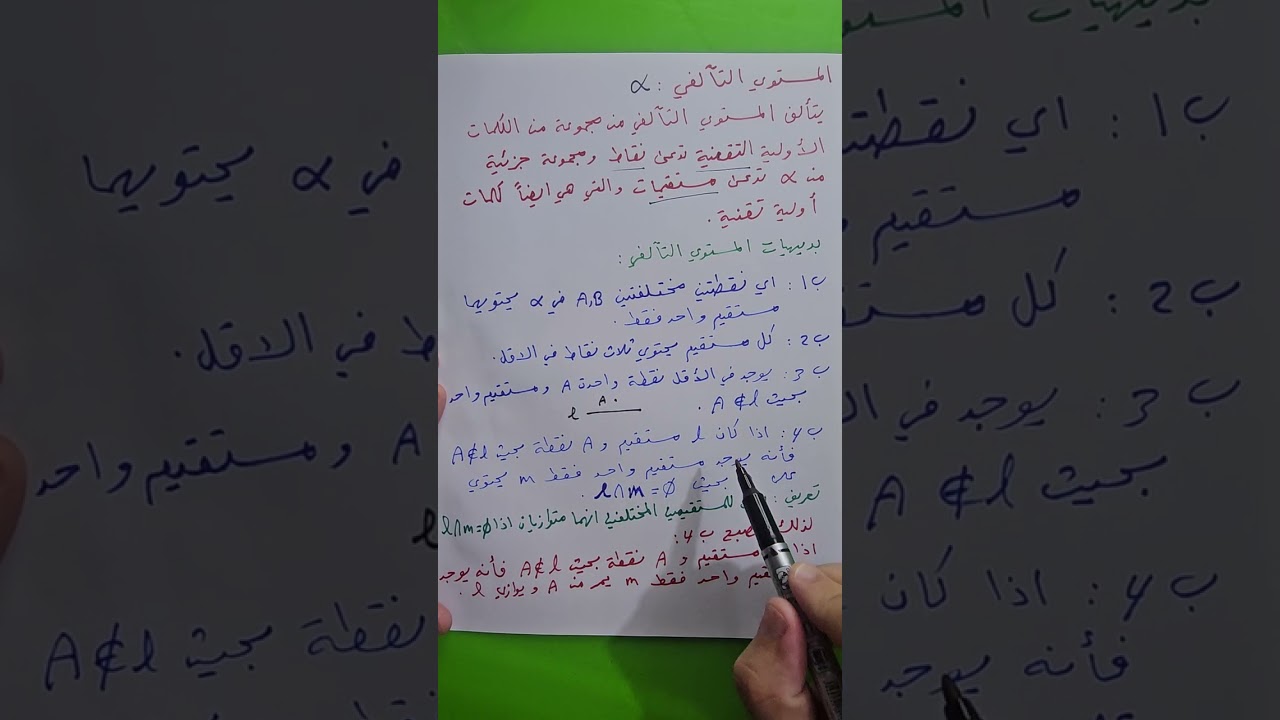 المستوي التآلفي : α
يتألف المستوي التآلفي من مجموعة من الكلمات
الأولية التقنية تدعى نقاط ومجموعة جزئية
من α تدعى مستقيمات والتي هي ايضاً كلمات
أولية تقنية .
بديهيات المستوي التآلفي :
ب1 : اي نقطتين مختلفتين A,B في α يحتويهما
مستقيم واحد فقط .
ب2 : كل مستقيم يحتوي ثلاث نقاط في الاقل .
ب3 : يوجد في الأقل نقطة واحدة A ومستقيم واحد
بحيث A∉l .
A .
l
ب4 : اذا كان l مستقيم و A نقطة بحيث A∉l
فأنه يوجد مستقيم واحد فقط m يحتوي
بحيث l∩m=∅ .
تعريف : للمستقيمين المختلفين انهما متوازيان اذا l∩m=∅
لذلك ب4 :
اذا مستقيم و A نقطة بحيث A∉l فأنه يوجد
واحد فقط m يمر من A ويوازي l .